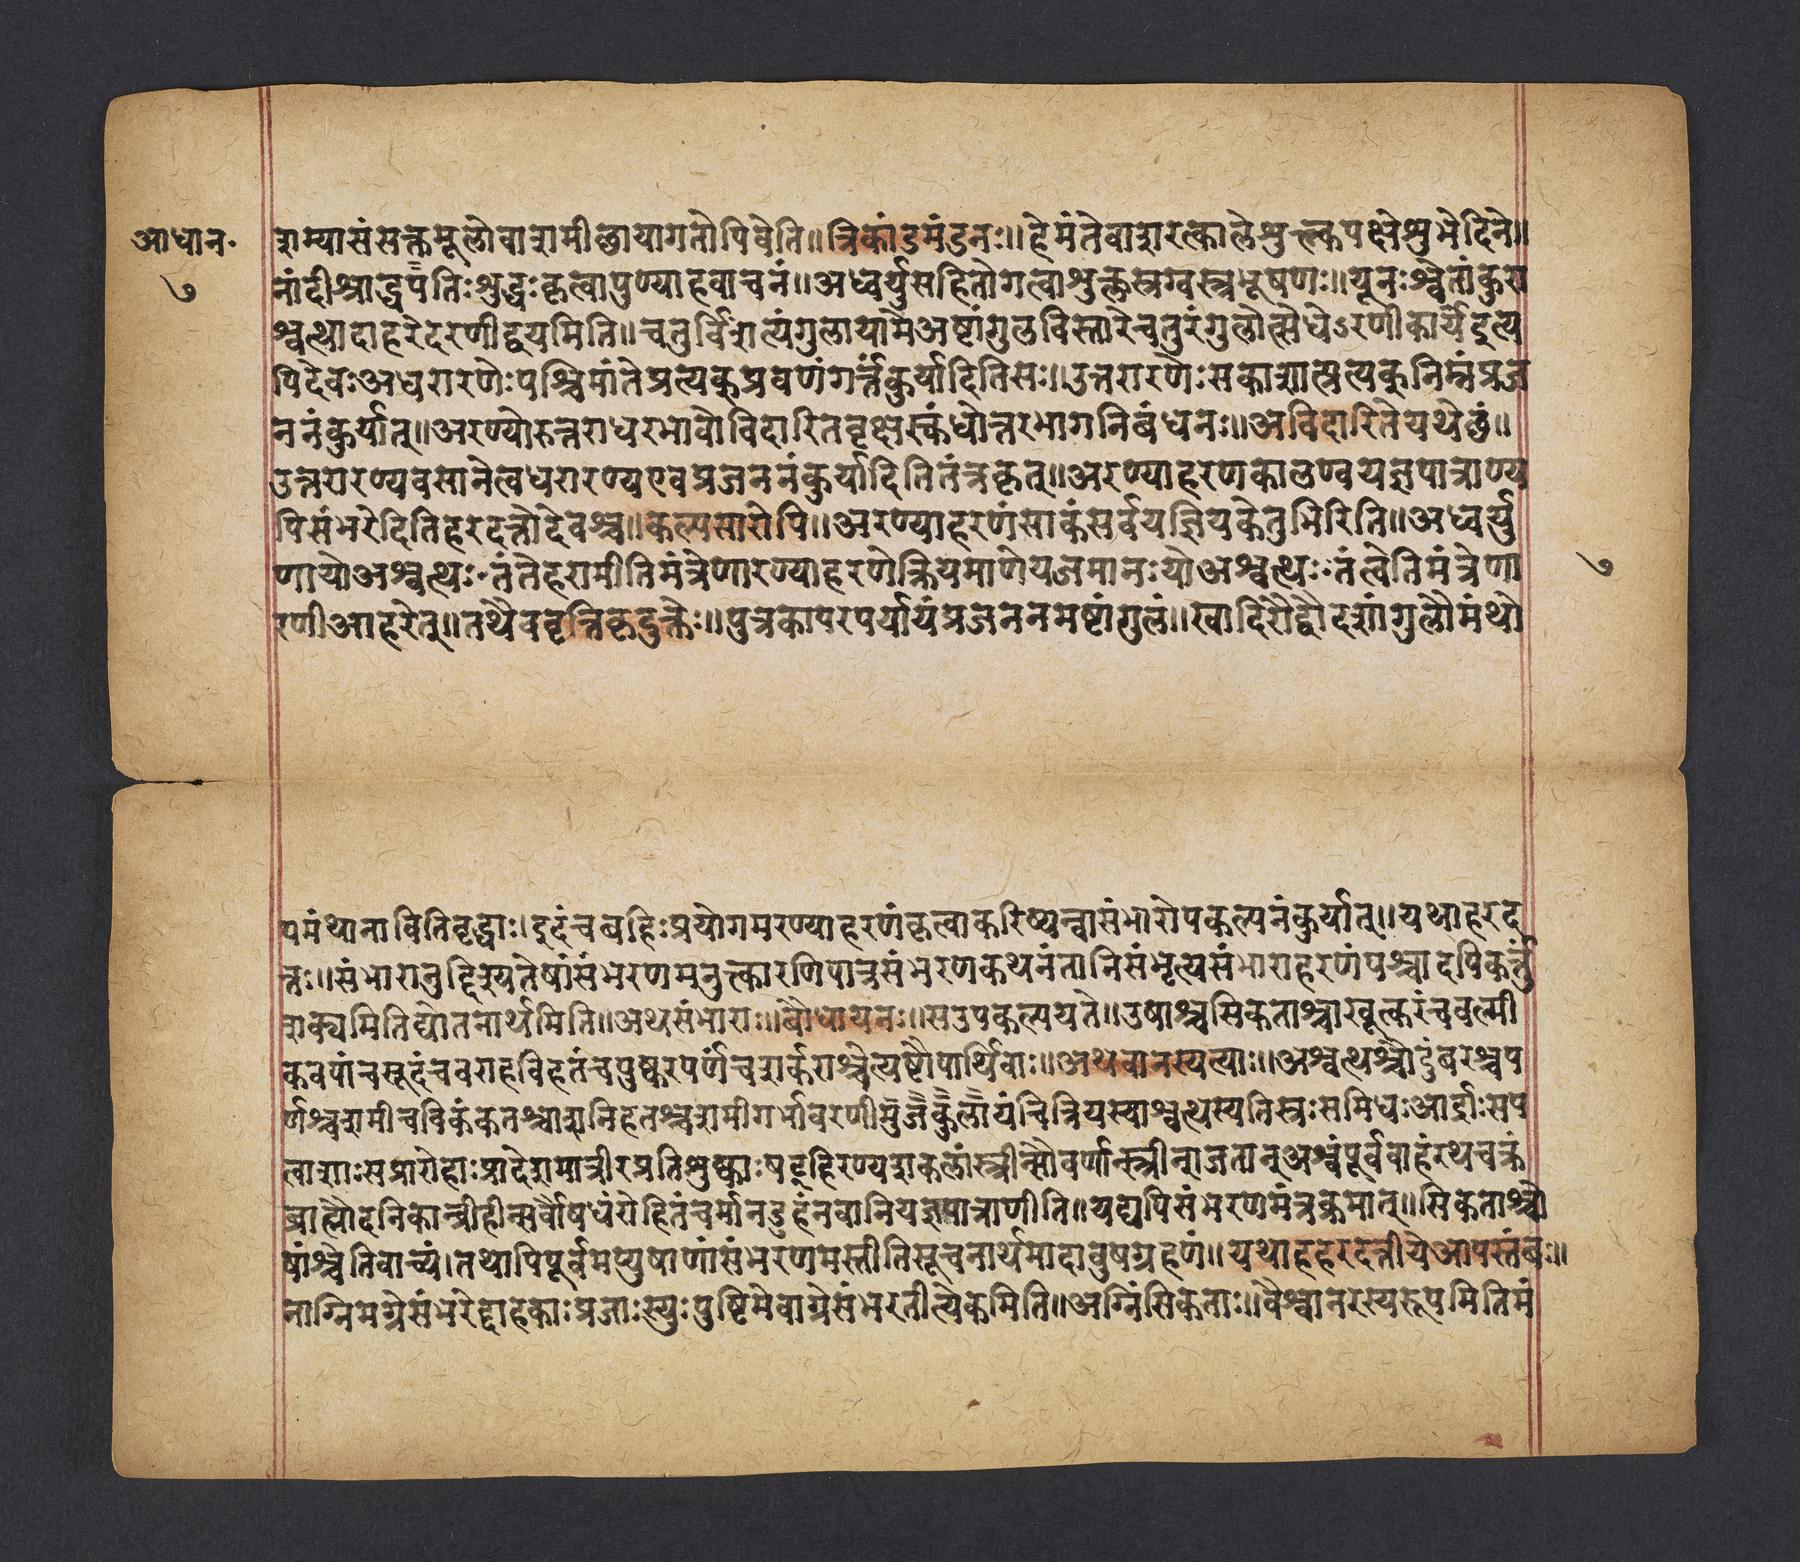 आधान॰
७
शम्यासंसक्तमूलोवाशमीछायागतोपिवेति॥त्रिकांडमंडनः॥हेमंतेवाशरत्कालेशुक्लपक्षेशुभेदिने॥
नांदीश्राद्धंपतिःशुद्धःकृत्वापुण्याहवाचनं॥अध्वर्युसहितोगत्वाशुक्लस्रग्वस्त्रभूषणः॥यूनःश्वेतांकुरा
श्वत्थादाहरेदरणीद्वयमिति॥चतुर्विंशत्यंगुलायामेअष्टांगुलविस्तारेचतुरंगुलोत्सेधेऽरणीकार्येइत्य
पिदेवःअधरारणेःपश्चिमांतेप्रत्यक्प्रवणंगर्त्तंकुर्यादितिसः॥उत्तरारणेःसकाशात्प्रत्यक्निम्नंप्रज
ननंकुर्यात्॥अरण्योरुत्तराधरभावोविदारितवृक्षस्कंधोत्तरभागनिबंधनः॥अविदारितेयथेछं॥
उत्तरारण्यवसानेत्वधरारण्यएवप्रजननंकुर्यादितितंत्रकृत्॥अरण्याहरणकालएवयज्ञपात्राण्य
पिसंभरेदितिहरदत्तोदेवश्च॥कल्पसारोपि॥अरण्याहरणंसाकंसर्वयज्ञियकेतुभिरिति॥अध्वर्यु
णायोअश्वत्थः॰तंतेहरामीतिमंत्रेणारण्याहरणेक्रियमाणेयजमानःयोअश्वत्थः॰तंत्वेतिमंत्रेणा
रणीआहरेत्॥तथैववृत्तिकृदुक्तेः॥पुत्रकापरपर्यायंप्रजननमष्टांगुलं॥खादिरौद्वौदशांगुलौमंथौ
७
पमंथानावितिवृद्धाः।इदंचबहिःप्रयोगमरण्याहरणंकृत्वाकरिष्यन्वासंभारोपकल्पनंकुर्यात्॥यथाहरद
त्तः॥संभारानुद्दिश्यतेषांसंभरणमनुत्क्कारणिपात्रसंभरणकथनंतानिसंभृत्यसंभाराहरणंपश्चादपिकर्त्तुं
शक्यमितिद्योतनार्थमिति॥अथसंभाराः॥बौधायनः॥सउपकल्पयते॥उषाश्चसिकताश्चाखूत्करंचवल्मी
कवपांचसूदंचवराहविहतंचपुष्करपर्णंचशर्कराश्चेत्यष्टौपार्थिवाः॥अथवानस्पत्याः॥अश्वत्थश्चौदुंबरश्चप
र्णश्चशमीचविकंकतश्चाशनिहतश्चशमीगर्भावरणीमुंजकुलायंचित्रियस्याश्वत्थस्यतिस्त्रःसमिधःआर्द्राःसप
लाशाःसप्रारोहाःप्रादेशमात्रीरप्रतिशुष्काःषट्हिरण्यशकलांस्त्रीन्सौवर्णान्स्त्रीन्राजतान्अश्वंपूर्ववाहंरथचक्रं
ब्राह्मौदनिकान्व्रीहीन्सर्वौषधंरोहितंचर्मानडुहंनवानियज्ञपात्राणीति॥यद्यपिसंभरणमंत्रक्रमात्॥सिकताश्चो
षांश्चेतिवाच्यं।तथापिपूर्वमप्युषाणांसंभरणमस्तीतिसूचनार्थमादावुषग्रहणं॥यथाहहरदत्तीयेआपस्तंबः॥
नाग्निमग्रेसंभरेद्दाहकाःप्रजाःस्युःपुष्टिमेवाग्रेसंभरतीत्येकमिति॥अग्निंसिकताः॥वैश्वानरस्यरूपमितिमं